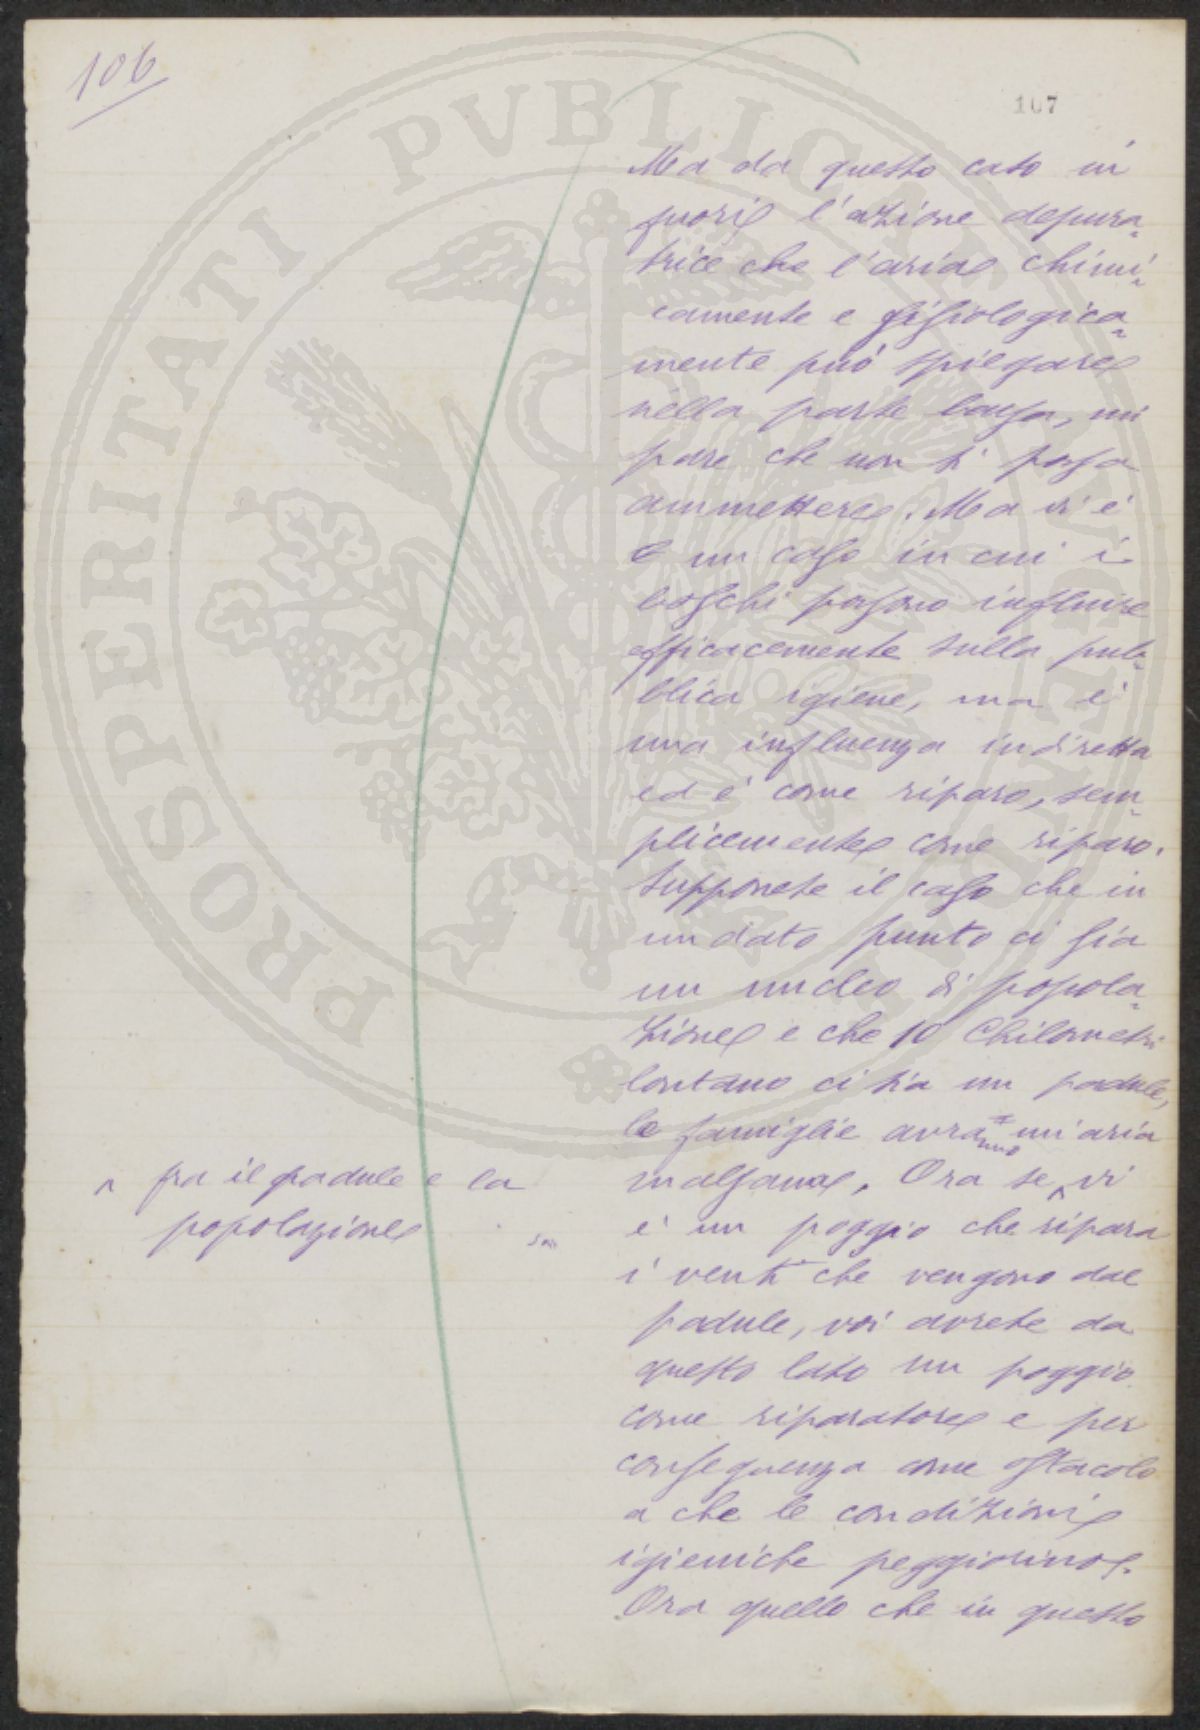 106
107
Ma da questo caso in
fuori l'azione depura-
trice che l'aria chimi-
camente e fisiologica-
mente può spiegare
nella parte bassa, mi
pare che non si possa
ammettere. Ma vi è
un caso in cui i
boschi possono influire
efficacemente sulla pub-
blica igiene, ma è
una influenza indiretta
ed è come riparo, sem-
plicemente come riparo.
Supponete il caso che in
un dato punto ci sia
un nucleo di popola-
zione e che 10 Chilometri
lontano ci sia un padule,
le famiglie avranno un'aria
malsana. Ora se ^ vi
^ fra il padule e la
popolazione
è un poggio che ripara
i venti che vengono dal
padule, voi avrete da
questo lato un poggio
come riparatore e per
conseguenza come ostacolo
a che le condizioni
igieniche peggiorino.
Ora quello che in questo
PROSPERITATI PUBLICAE AUGENDAE